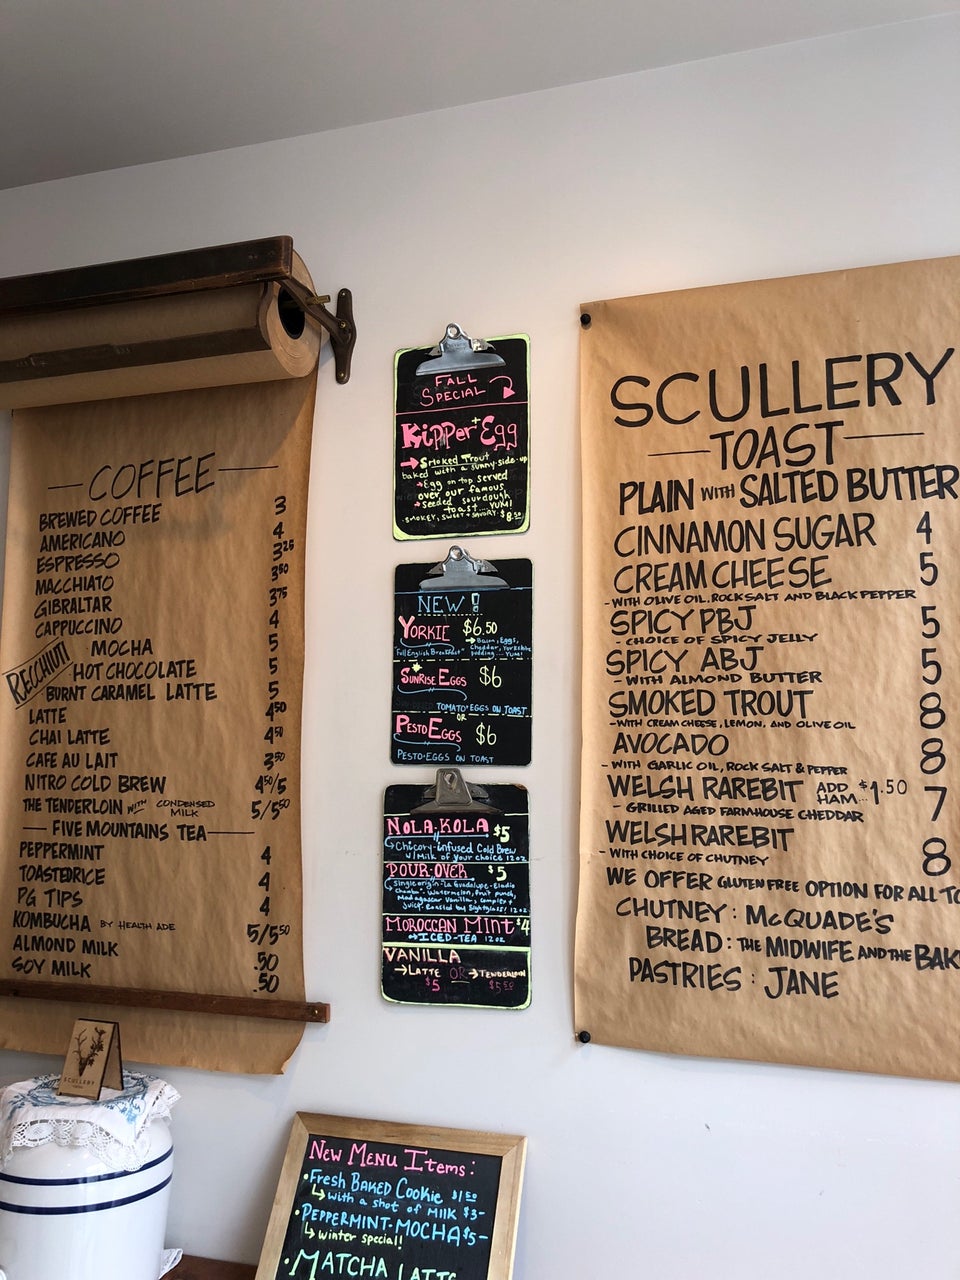 COFFEE
BREWED COFFEE 3
AMERICANO 4
ESPRESSO 3.25
MACCHIATO 3.50
GIBRALTAR 3.75
CAPPUCCINO 4
RECCHIUTI
MOCHA 5
HOT CHOCOLATE 5
BURNT CARAMEL LATTE 5
LATTE 4.50
CHAI LATTE 4.50
CAFE AU LAIT 3.50
NITRO COLD BREW 4.50/5
THE TENDERLOIN WITH CONDENSED MILK 5/5.50
FIVE MOUNTAINS TEA
PEPPERMINT 4
TOASTED RICE 4
PG TIPS 4
KOMBUCHA BY HEALTH ADE 5/5.50
ALMOND MILK .50
SOY MILK .50
SCULLERY
FALL
SPECIAL
Kipper + Egg
Smoked Trout
baked with a sunny-side-up
Egg on top served
over our famous
Seeded sourdough
toast... YUM!
SMOKEY, SWEET + SAVORY. $8.50
NEW!
YORKIE $6.50
Full English Breakfast
Bacon, Eggs,
Cheddar, Yorkshire
pudding.... YUM!
SUNRISE EGGS $6
TOMATO + EGGS ON TOAST
OR
PESTO EGGS $6
PESTO + EGGS ON TOAST
NOLA-KOLA $5
Chicory-infused Cold Brew
w/ Milk of your choice 12oz
POUR-OVER $5
Single origin - La Guadalupe - Eladio
Chamba - Watermelon, fruit punch,
Madagascar Vanilla, complex +
juicy. Roasted by Sightglass! 12oz
MOROCCAN MINT $4
ICED-TEA 12oz
VANILLA
LATTE OR TENDERLOIN
$5 $5.50
SCULLERY
TOAST
PLAIN WITH SALTED BUTTER
CINNAMON SUGAR 4
CREAM CHEESE 5
- WITH OLIVE OIL, ROCK SALT AND BLACK PEPPER
SPICY PBJ 5
- CHOICE OF SPICY JELLY
SPICY ABJ 5
- WITH ALMOND BUTTER
SMOKED TROUT 8
- WITH CREAM CHEESE, LEMON, AND OLIVE OIL
AVOCADO 8
- WITH GARLIC OIL, ROCK SALT & PEPPER
WELSH RAREBIT ADD HAM... $1.50 7
- GRILLED AGED FARMHOUSE CHEDDAR
WELSH RAREBIT 8
- WITH CHOICE OF CHUTNEY
WE OFFER GLUTEN FREE OPTION FOR ALL TO
CHUTNEY: McQUADE'S
BREAD: THE MIDWIFE AND THE BAK
PASTRIES: JANE
NEW MENU ITEMS:
• Fresh BAKED COOKIE $1.50
with a shot of MILK $3-
• PEPPERMINT-MOCHA $5-
winter special!
• MATCHA LATTE